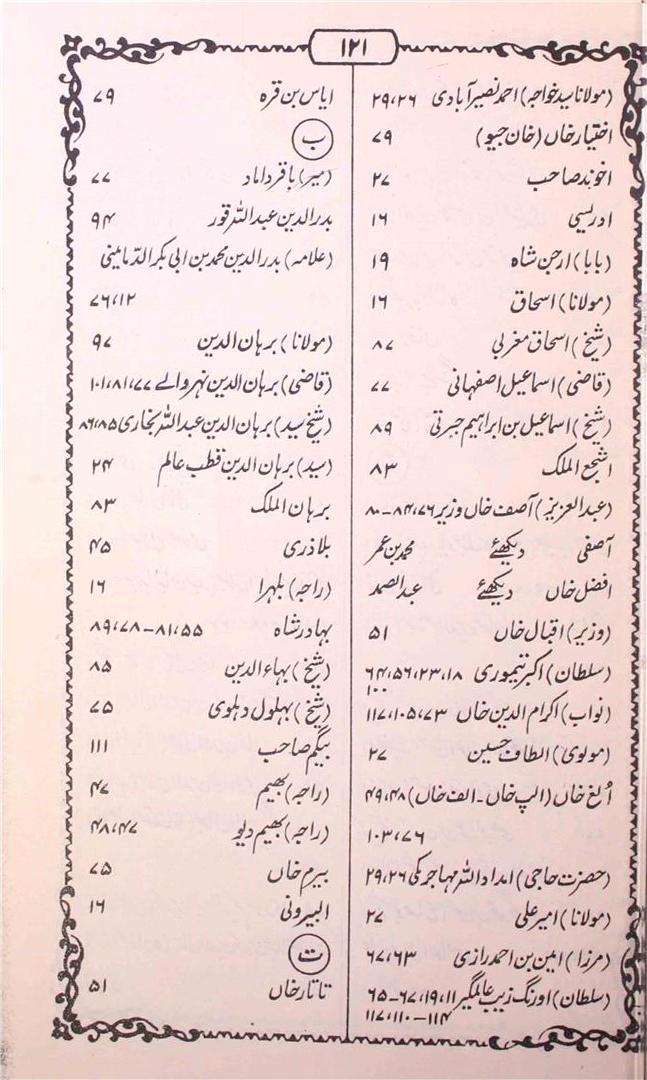 ۱۲۱
(مولانا سید خواجہ) احمد نصیرآبادی ۲۹،۲۶
اختیار خاں (خان جیو) ۷۹
اخوند صاحب ۲۷
ادریسی ۱۶
(بابا) ارجن شاہ ۱۹
(مولانا) اسحاق ۱۶
(شیخ) اسحاق مغربی ۸۷
(قاضی) اسماعیل اصفہانی ۷۷
(شیخ) اسماعیل بن ابراہیم جبرتی ۸۹
اشجع الملک ۸۳
(عبدالعزیز) آصف خاں وزیر ۸۴،۷۶–۸۰
آصفی دیکھئے محمد بن عمر
افضل خاں دیکھئے عبدالصمد
(وزیر) اقبال خاں ۵۱
(سلطان) اکبر تیموری ۶۴،۵۶،۲۳،۱۸
۱۰۰
(نواب) اکرام الدین خاں ۱۱۷،۱۰۵،۷۳
(مولوی) الطاف حسین ۲۷
اُلغ خاں (الپ خاں - الف خاں) ۴۹،۴۸
۱۰۳،۷۶
(حضرت حاجی) امداد اللہ مہاجر مکی ۲۹،۲۶
(مولانا) امیر علی ۲۷
(مرزا) امین بن احمد رازی ۶۷،۶۳
(سلطان) اورنگ زیب عالمگیر ۶۵–۶۷،۱۹،۱۱
۱۱۷،۱۱۰–۱۱۴
ایاس بن قرہ ۷۹
ب
(میر) باقر داماد ۷۷
بدرالدین عبداللہ قور ۹۴
(علامہ) بدرالدین محمد بن ابی بکر الدمامینی
۷۶،۱۲
(مولانا) برہان الدین ۹۷
(قاضی) برہان الدین نہروالے ۱۰۱،۸۱،۷۷
(شیخ سید) برہان الدین عبداللہ بخاری ۸۶،۸۵
(سید) برہان الدین قطب عالم ۲۴
برہان الملک ۸۳
بلاذری ۴۵
(راجہ) بلہرا ۱۶
بہادر شاہ ۸۹،۷۸–۸۱،۵۵
(شیخ) بہاء الدین ۸۵
(شیخ) بہلول دہلوی ۷۵
بیگم صاحب ۱۱۱
(راجہ) بھیم ۴۷
(راجہ) بھیم دیو ۴۸،۴۷
بیرم خاں ۷۵
البیرونی ۱۶
ت
تاتار خاں ۵۱